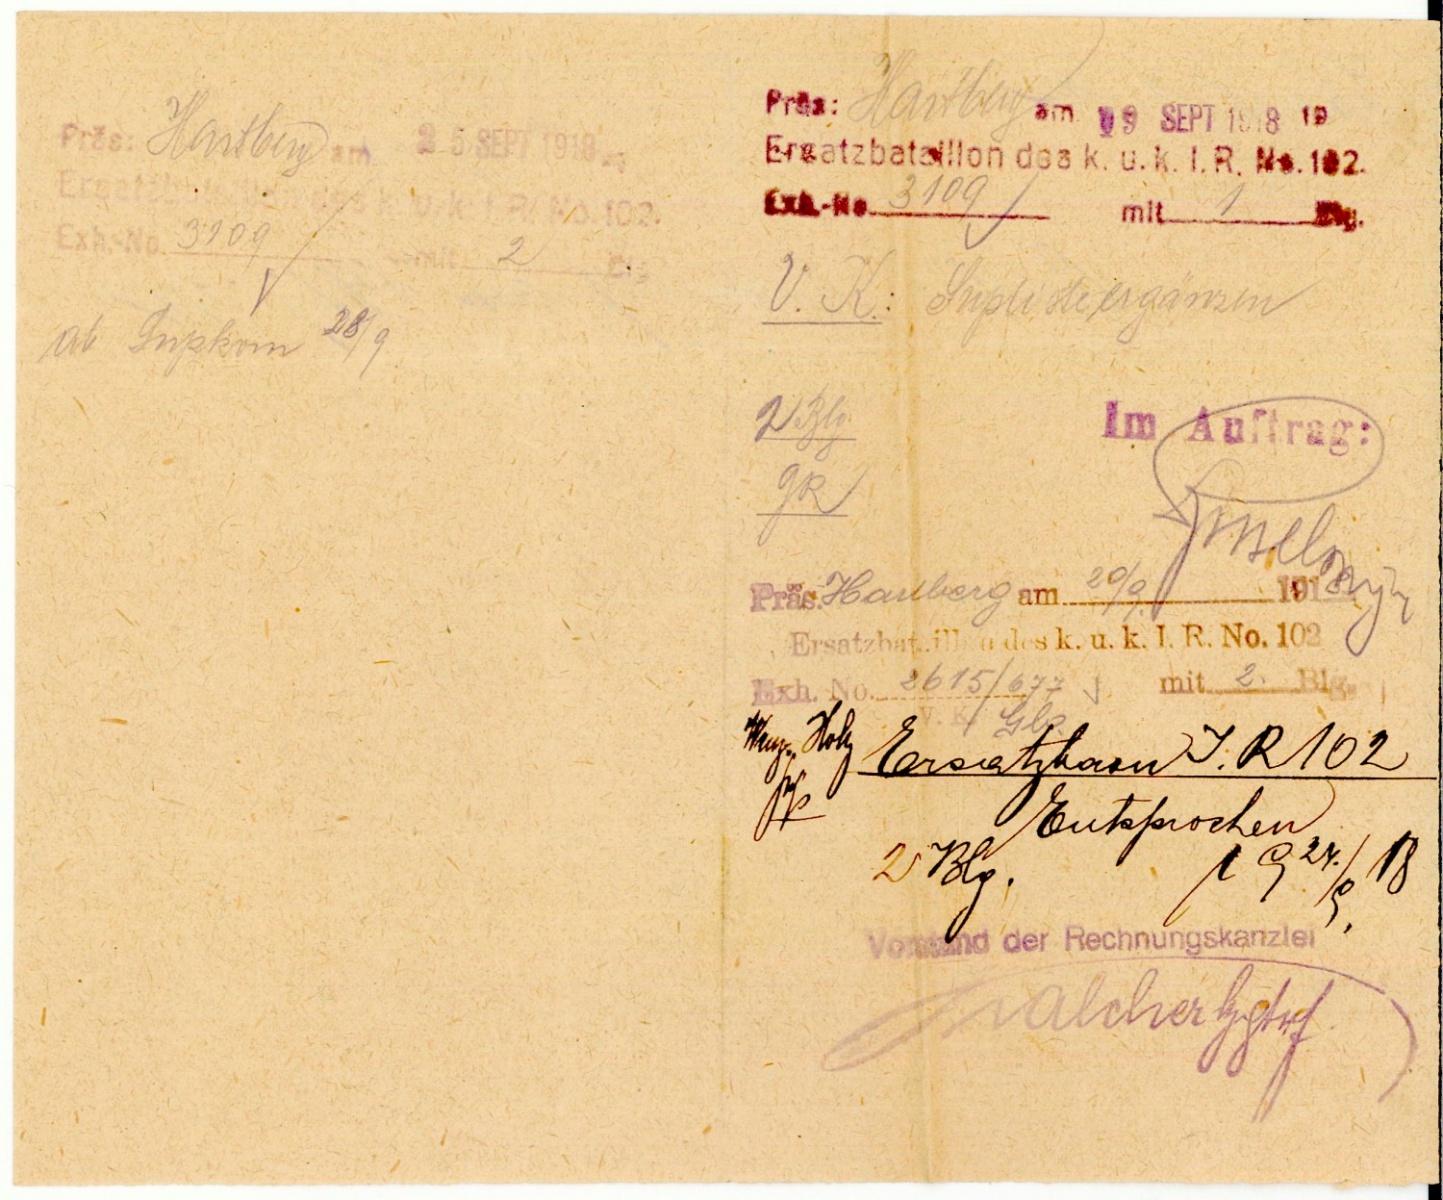 Präs: Hartberg am 25 SEPT 1918
Ersatzbataillon des k. u. k. I. R. No. 102.
Exh.-No. 3109 mit 2 Blg
ab Supkom 28/9
Präs: Hartberg am 19 SEPT 1918 19
Ersatzbataillon des k. u. k. I. R. No. 102.
Exh.-No. 3109 mit 1 Blg.
V. K.: ergänzen
2 Blg.
Im Auftrag:
Präs. Hartberg am 20/9. 1918
Ersatzbataillon des k. u. k. I. R. No. 102
Exh. No. 2615/677 mit 2. Blg.
V. K.
Ersatzbaon I. R 102
Entsprochen
2 Blg. 24./9. 18
Vorstand der Rechnungskanzlei